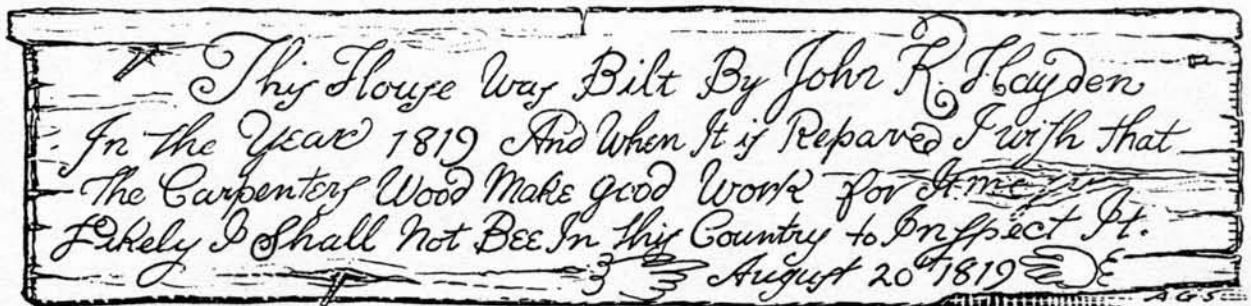 This House Was Bilt By John R. Hayden
In the Year 1819 And When It is Repared I wish that
The Carpenters Wood Make good Work for It
Likely I Shall Not Bee In this Country to Inspect It.
August 20th 1819